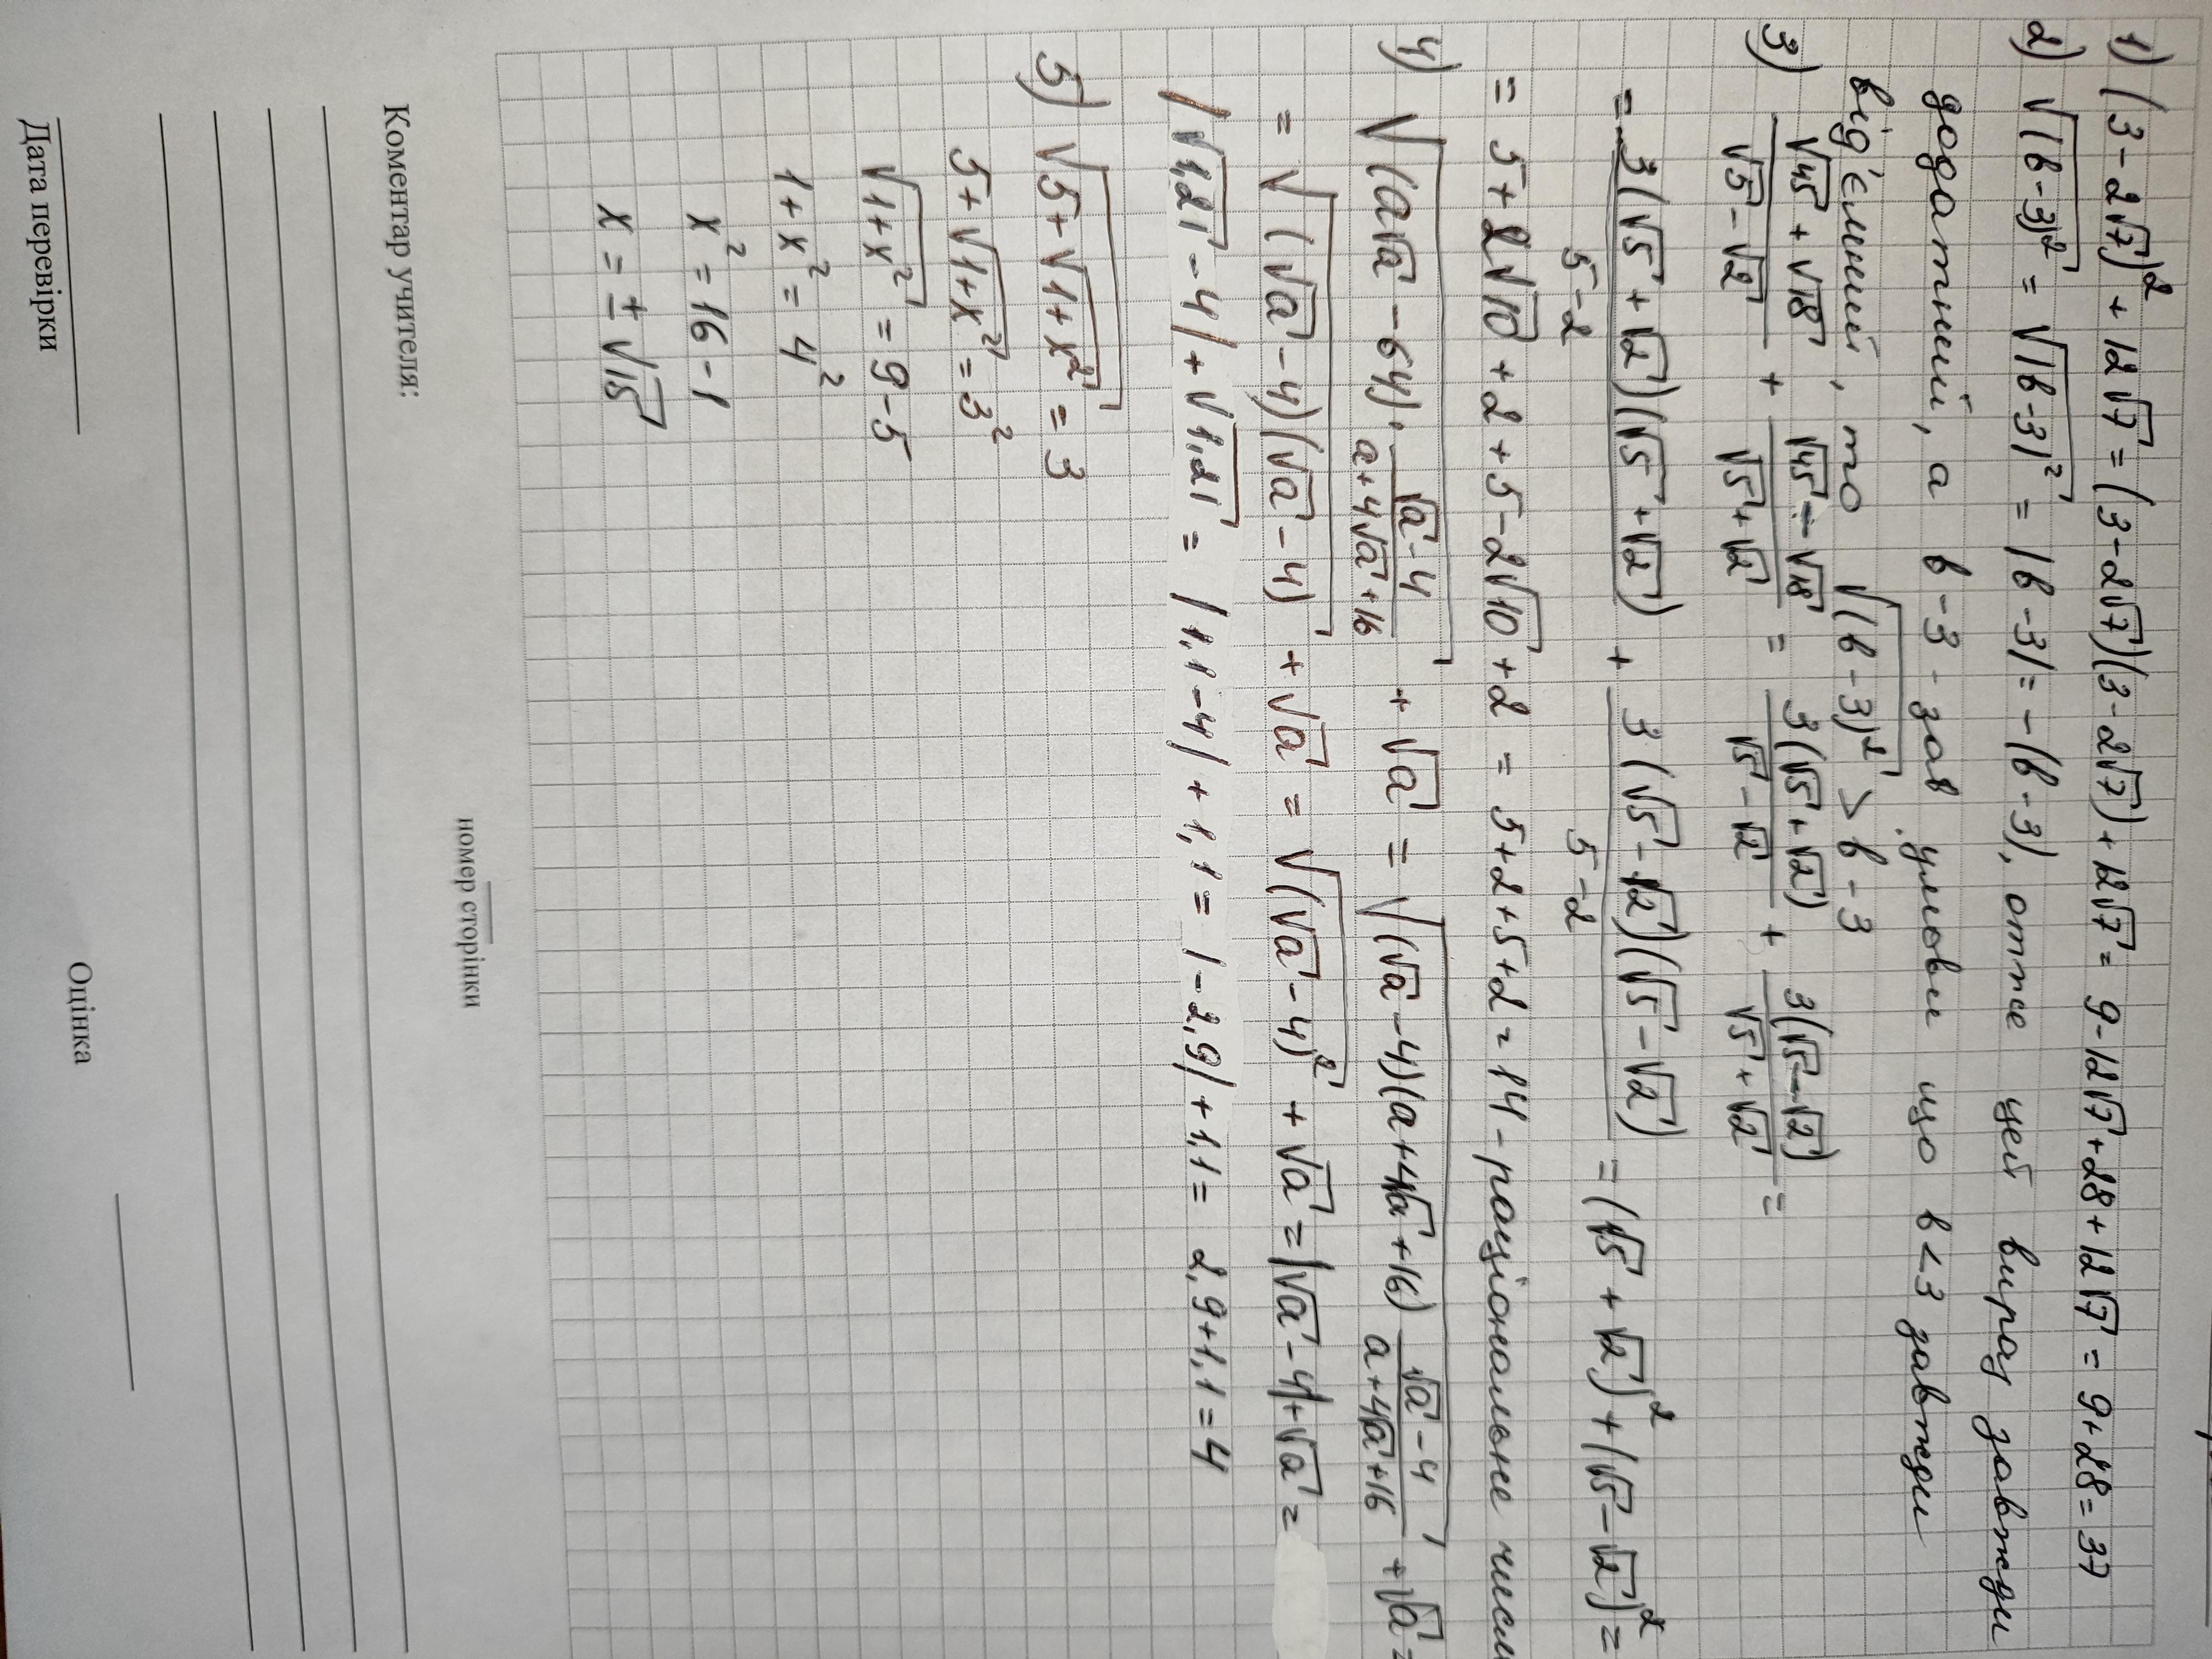 1) (3-2√7)² + 12√7 = (3-2√7)(3-2√7) + 12√7 = 9-12√7+28+12√7 = 9+28=37
2) √(b-3)² = √|b-3|² = |b-3| = -(b-3), отже цей вираз завжди
додатний, а b-3 - за умови що b<3 завжди
від'ємний, то √(b-3)² > b-3
3) (√45 + √18)/(√5 - √2) + (√45 - √18)/(√5 + √2) = 3(√5+√2)/(√5 - √2) + 3(√5-√2)/(√5 + √2) =
= 3(√5+√2)(√5+√2)/(5-2) + 3(√5-√2)(√5-√2)/(5-2) = (√5+√2)² + (√5-√2)² =
= 5+2√10+2+5-2√10+2 = 5+2+5+2=14 - раціональне
4) √((a√a - 64) · (√a-4)/(a+4√a+16)) + √a = √((√a-4)(a+4√a+16) (√a-4)/(a+4√a+16)) + √a =
= √((√a-4)(√a-4)) + √a = √(√a-4)² + √a = |√a-4| + √a =
|√1,21 - 4| + √1,21 = |1,1-4| + 1,1 = |-2,9| + 1,1 = 2,9+1,1=4
5) √(5+√(1+x²)) = 3
5+√(1+x²) = 3²
√(1+x²) = 9-5
1+x² = 4²
x² = 16-1
x = ±√15
номер сторінки
Коментар учителя:
Дата перевірки
Оцінка